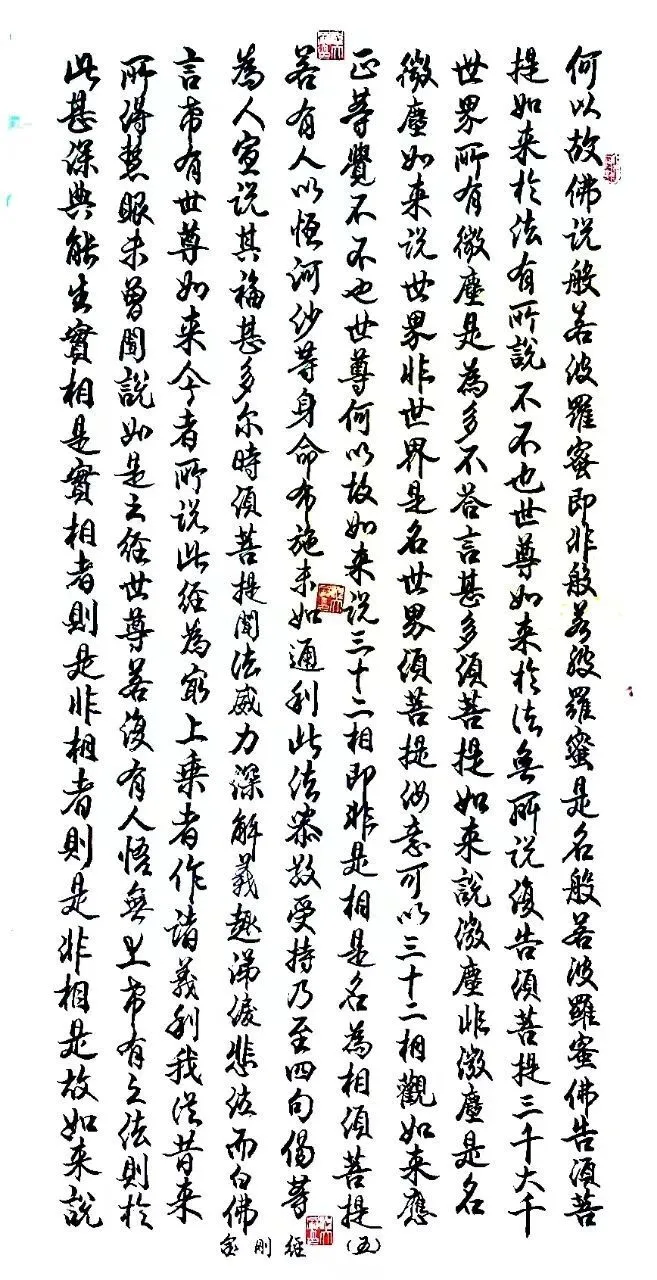 何以故佛说般若波羅蜜即非般若波羅蜜是名般若波羅蜜佛告須菩
提如来於法有所說不不也世尊如来於法無所说復告須菩提三千大千
世界所有微塵是為多不答言甚多須菩提如来說微塵非微塵是名
微塵如来说世界非世界是名世界須菩提汝意可以三十二相觀如来應
正等覺不不也世尊何以故如来说三十二相即非是相是名為相須菩提
若有人以恆河沙等身命布施未如通利此法恭敬受持乃至四句偈等
為人宣说其福甚多尔時須菩提聞法威力深解義趣涕淚悲泣而白佛
言希有世尊如来今者所说此經為最上乘者作諸義利我従昔来
所得慧眼未曾聞說如是之經世尊若復有人悟無上希有之法則於
此甚深典能生實相是實相者則是非相者則是非相是故如来說
金剛經(五)